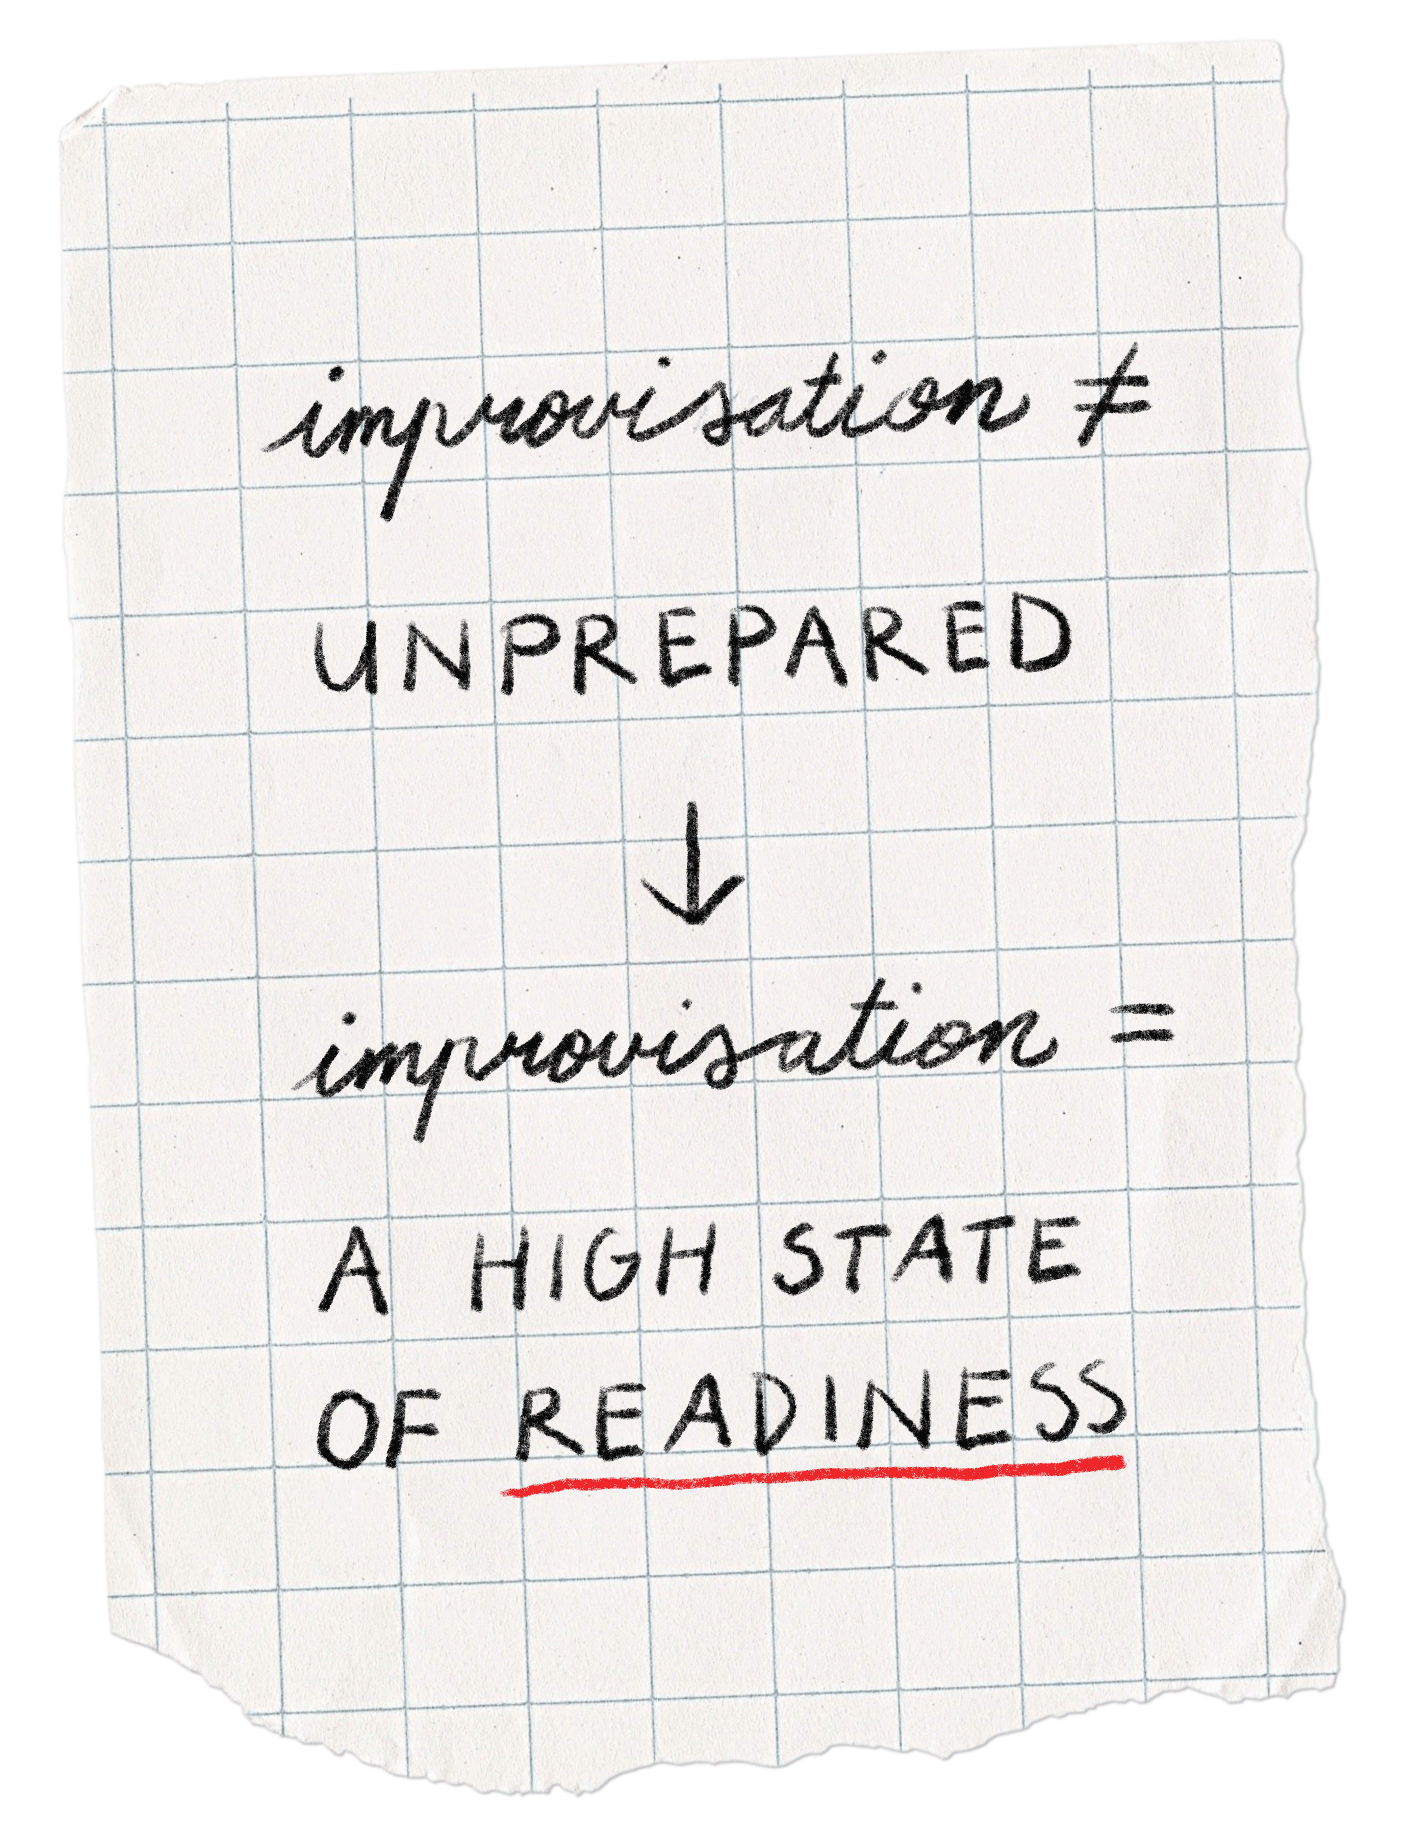 improvisation ≠
UNPREPARED
↓
improvisation =
A HIGH STATE
OF READINESS